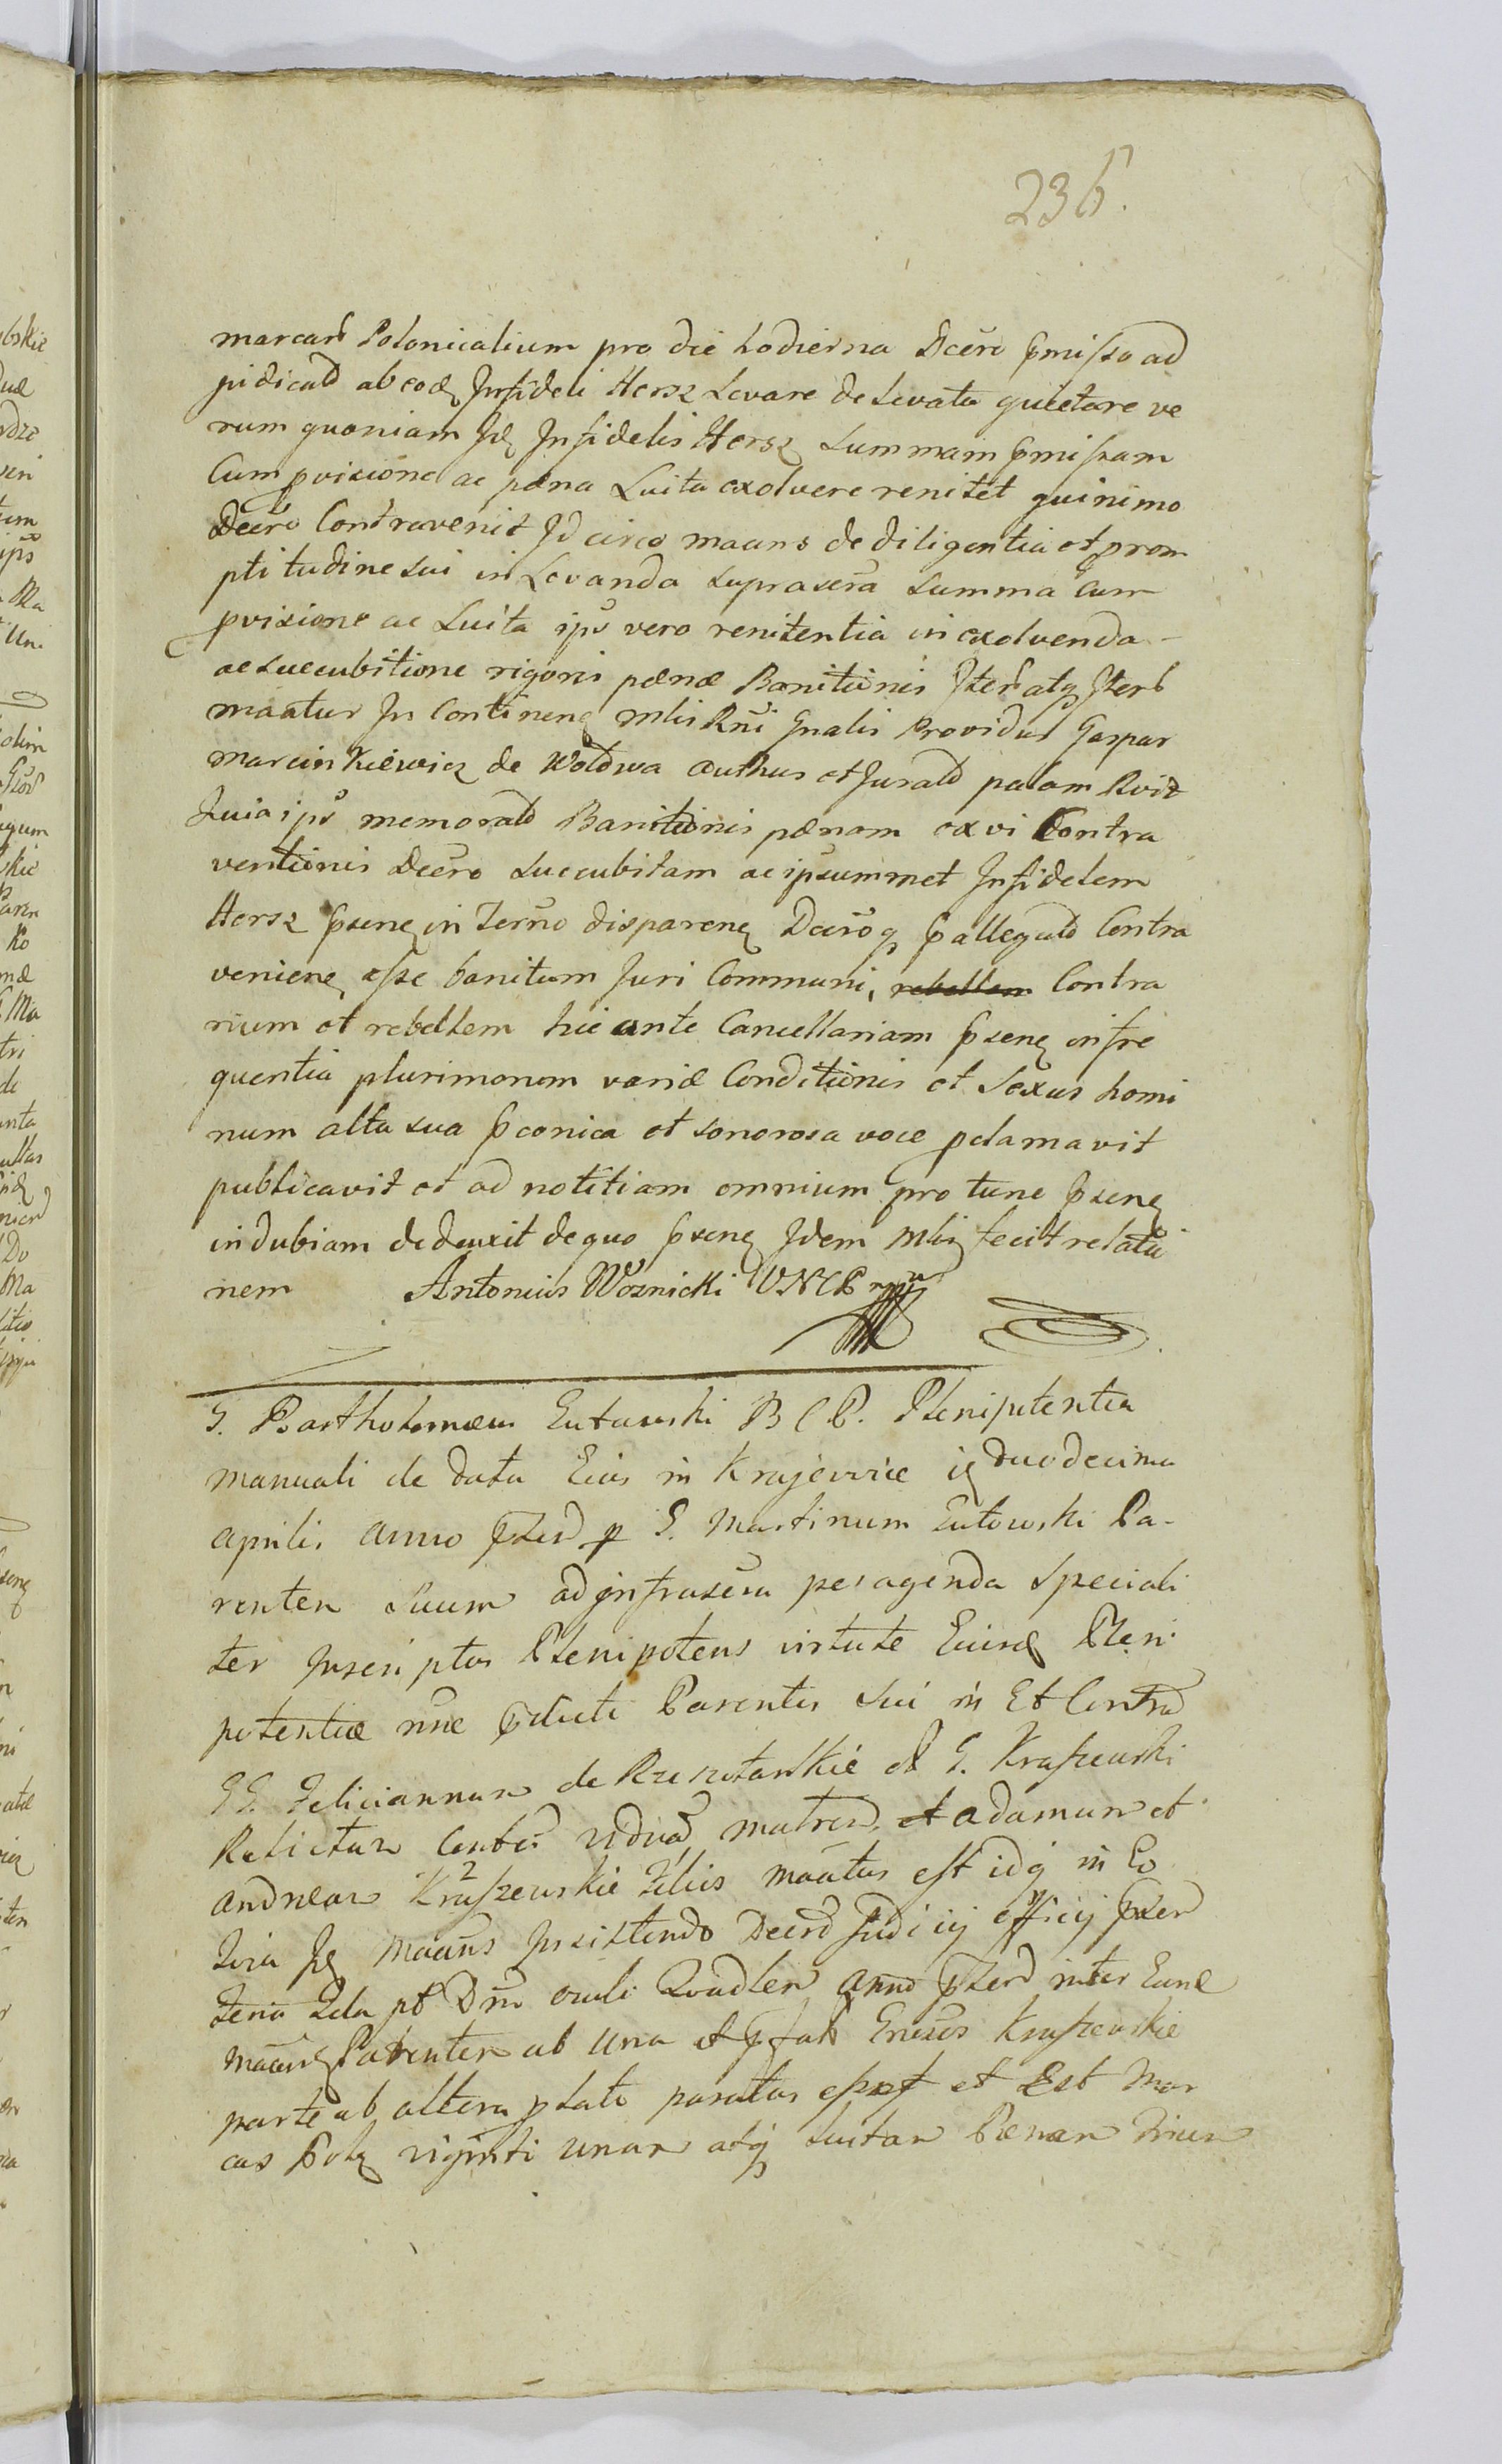 236.
marcarũ Polonicalium pro die hodierna Dcẽro pmisso ad
judicatã ab eodẽ Infideli Hersz Levare de Levata quietare ve
rum quoniam Idẽ Infidelis Hersz Summam pmissam
Cum pvisione ac pæna Luita exolvere renitet quinimo
Decro Contravenit Id circo maans de diligentia et prom
ptitudine sui in Levanda suprascrã Summa cum
pvisione ac Luita ips̃ vero renitentia in exolvenda
ac succubitione rigoris pænæ Banitionis Ster atq Sterb
maatur In Continenẽ Mlis Rñi Gnalis Providus Gaspar
Marcinkiewicz de Woldwa authus et Juratũ palam Rvit
Quia ips̃ memoratũ Banitionis pænam ex vi Contra
ventionis Decro succubitam ac ipsummet Infidelem
Hersz psenẽ in Termõ disparenẽ Decroq pallegutũ Contra
venienẽ esse banitum Juri Communi, rebellem Contra
rium et rebellem hic ante Cancellariam psenẽ in fre
quentia plurimorum variæ Conditionis et Sexus homi
num alta sua pconica et sonorosa voce pclamavit
publicavit et ad notitiam omnium pro tunc psenẽ
indubiam deduxit de quo psenẽ Idem Mlis fecit relatio
nem Antonius Woznicki VNCP
G. Bartholomæus Lutowski BCP. Plenipotentia
manuali de data Eius in Krajewice ij duodecima
aprilis anno pzen p G. Martinum Lutowski Pa-
rentem suum ad infrascra peragenda Speciali
ter Inscriptus Plenipotens virtute Eiusd Pleni
potentiæ nñe pdicti Parentis sui in Et Contra
GG. Feliciannam de Rzeszotarskie G. Kraszewski
Relictam viduã matrem, et Adamum et
Andream Kraszewskie Filios maatus est idq in Eo
Quia Idẽ Maans Insistendo Decro Judicij officij pzen
Feria 2da pt Dm̃ oculi Quadlem anno pzen inter Eund
maanẽ Parentem ab una et pfatos Kraszewskie
parte ab altera plato paratus esset et Est Mar
cas Polẽ viginti unam atq luitam Pænam Trium